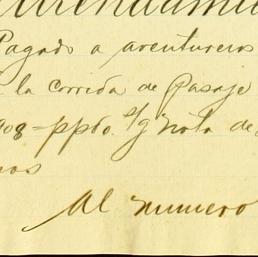 Pagado a aventureros
la corrida de Pasaje
908 - ppdo. s/g Nota de
Al numero